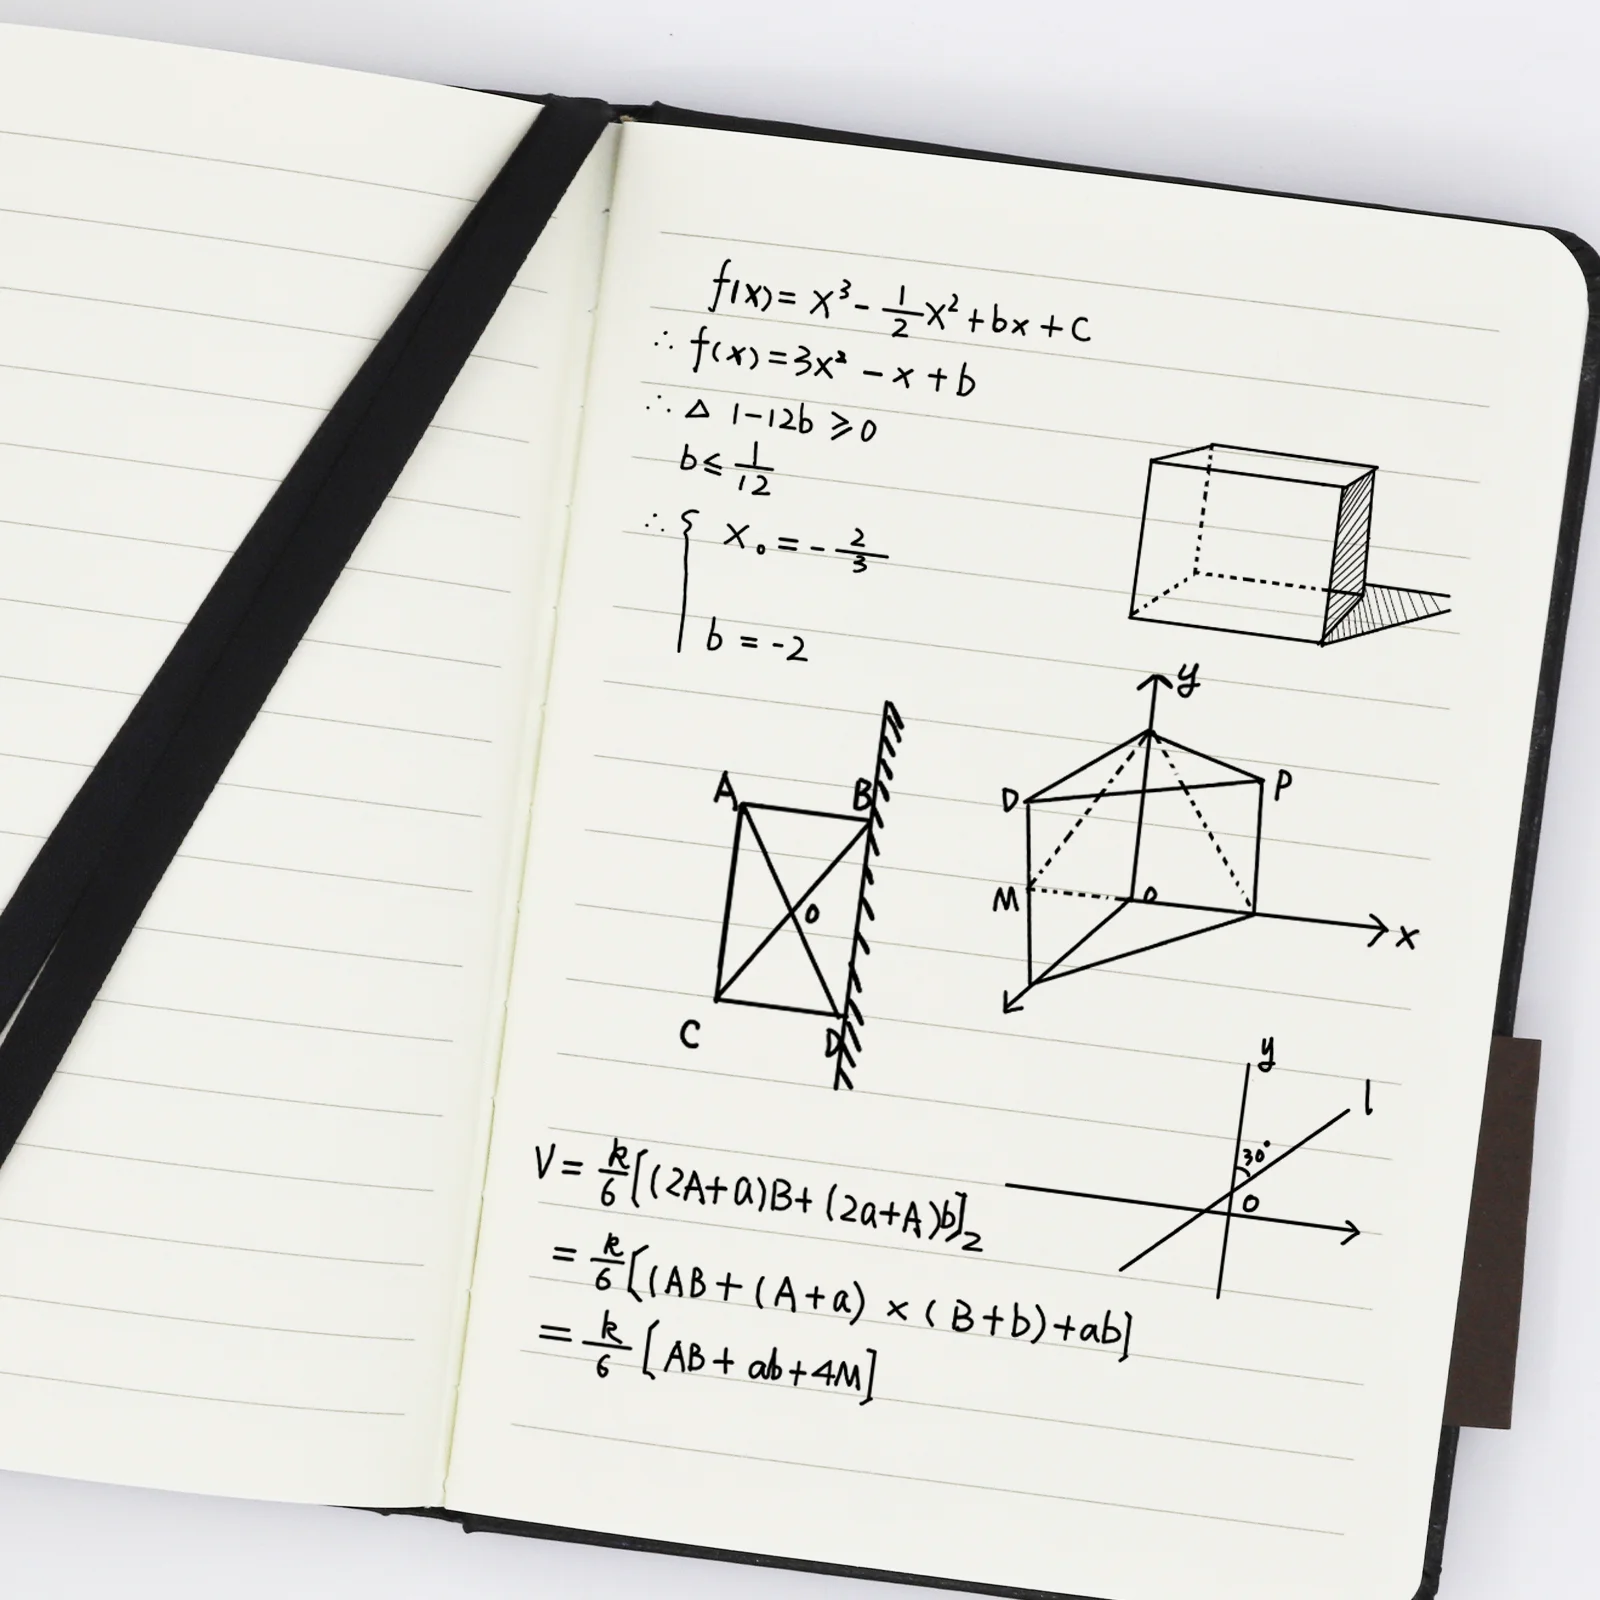 f(x) = x³ - 1/2 x² + bx + c
∴ f(x) = 3x² - x + b
∴ △ 1 - 12b ⩾ 0
b ≤ 1/12
∴ { x₀ = - 2/3
b = -2
y
A B
D P
O
M O
x
C D
y
l
30°
O
V = k/6 [(2A+a)B + (2a+A)b]₂
= k/6 [(AB + (A+a) × (B+b) + ab]
= k/6 [AB + ab + 4M]